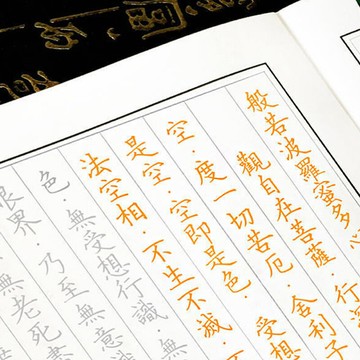 般若波羅蜜多心
觀自在菩薩·行深
空·度一切苦厄·舍利子
是空·空即是色·受想
法空相·不生不滅·
色·無受想行識·無
眼界 乃至無意識
無老死盡